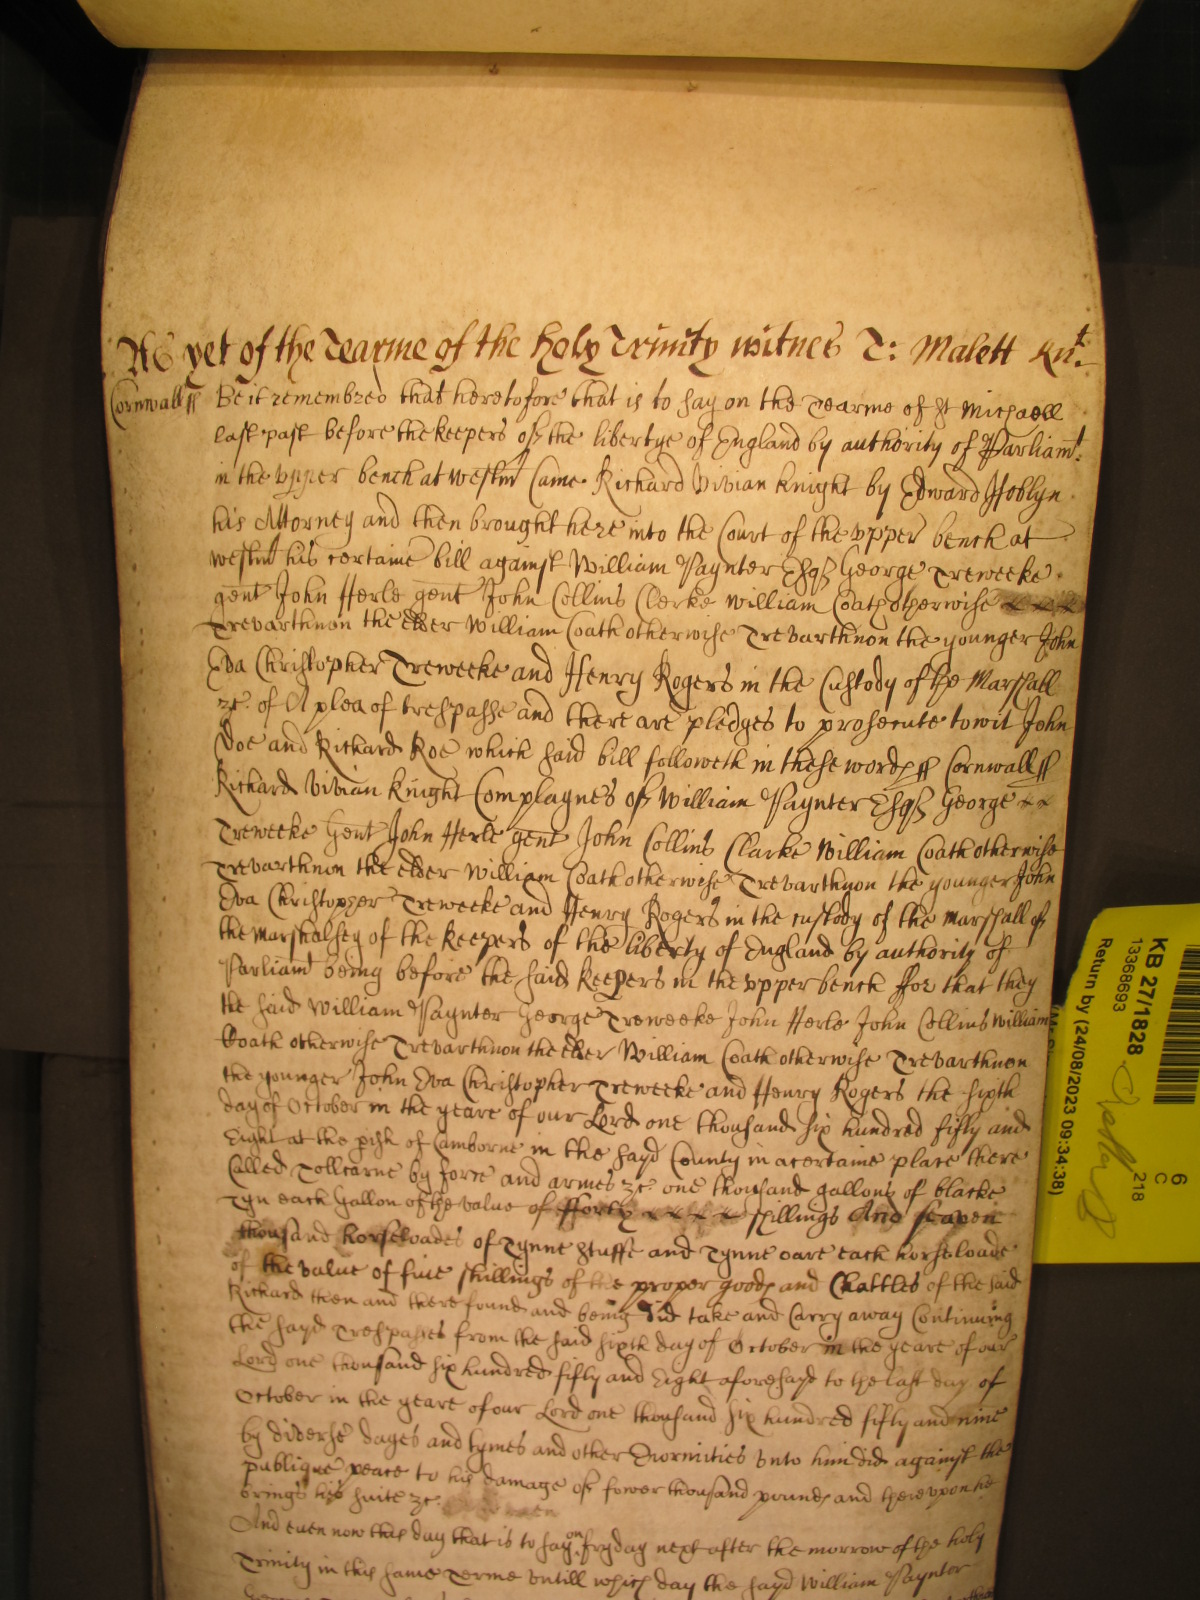 As yet of the Tearme of the holy Trinity witnes T: Malett Knt.
Cornwall ss Be it remembred that heretofore that is to say on the Tearme of St Michaell
last past before the keepers of the libertye of England by authority of Parliamt.
in the vpper bench at Westm Came Richard Vivian Knight by Edward Hoblyn
his Attorney and then brought here into the Court of the vpper bench at
Westm his certaine bill against William Paynter Esqr George Treweeke
gent John Herle gent John Collins Clerke William Coath otherwise
Trevarthnon the elder William Coath otherwise Trevarthnon the younger John
Eva Christopher Treweeke and Henry Rogers in the Custody of the Marshall
&c. of A plea of trespasse and there are pledges to prosecute to wit John
Doe and Richard Roe which said bill followeth in these words ss Cornwall ss
Richard Vivian Knight Complaynes of William Paynter Esqr George
Treweeke Gent John Herle gent John Collins Clarke William Coath otherwise
Trevarthnon the elder William Coath otherwise Trevarthnon the younger John
Eva Christopher Treweeke and Henry Rogers in the custody of the marshall of
the marshalsey of the keepers of the liberty of England by authority of
Parliamt being before the said keepers in the vpper bench ffor that they
the said William Paynter George Treweeke John Herle John Collins William
Coath otherwise Trevarthnon the elder William Coath otherwise Trevarthnon
the younger John Eva Christopher Treweeke and Henry Rogers the sixth
day of October in the yeare of our Lord one thousand six hundred fifty and
Eight at the pish of Camborne in the sayd County in a certaine place there
Called Tollcarne by force and armes &c. one thousand gallons of blacke
Tyn each Gallon of the value of fforty shillings And seaven
thousand horseloades of Tynne stuffe and Tynne oare each horseloade
of the value of five shillings of the proper goods and Chattles of the said
Richard then and there found and being did take and Carry away Continuing
the sayd Trespasses from the said sixth day of October in the yeare of our
Lord one thousand six hundred fifty and Eight aforesayd to the last day of
October in the yeare of our Lord one thousand six hundred fifty and nine
by diverse dayes and tymes and other Enormities vnto him did against the
publique peace to his damage of fower thousand pounds and therevpon he
brings his suite &c.
And even now this day that is to say on fryday next after the morrow of the holy
Trinity in this same Terme vntill which day the sayd William Paynter
KB 27/1828
13368693
Return by (24/08/2023 09:34:38)
6
C
218